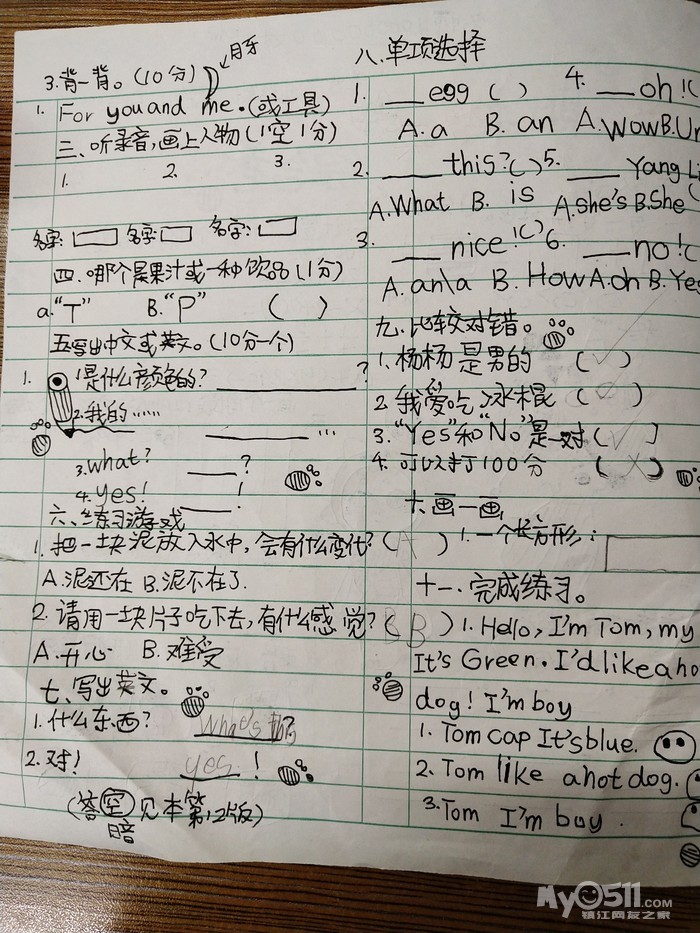 月牙
3.背一背。(10分)
1. For you and me.(或工具)
三、听录音,画上人物(1空1分)
1. 2. 3.
名字: 名字: 名字:
四.哪个是果汁或一种饮品(1分)
a."T" B."P" ( )
五写出中文或英文。(10分一个)
1. 1是什么颜色的? ?
2.我的…… …
3.what? ?
4.yes! !
六、练习游戏
1.把一块泥放入水中,会有什么变化?(A)
A.泥还在 B.泥不在了.
2.请用一块片子吃下去,有什么感觉?(B)
A.开心 B.难受
七、写出英文。
1.什么东西? What's
2.对! yes !
(答 见本第1,2版)
暗
八.单项选择
1. __egg ( ) 4. __oh!(
A.a B. an A.WowB.Ur
2. __this?( ) 5. __ Yang Li
A.What B. is A.she's B.She
3. __nice!( ) 6. __no!(
A.an\a B. How A.oh B.Yes
九.比较对错。
1.杨杨是男的 (✓)
2.我爱吃冰棍 ( )
3."Yes"和"No"是一对(✓)
4.可以考了100分 (X)
十.画一画,
1.一个长方形:
十一.完成练习。
1.Hello, I'm Tom, my
It's Green. I'd like a ho
dog! I'm boy
1. Tom cap It's blue.
2. Tom like a hot dog.
3.Tom I'm boy.
My0511.com
镇江网友之家